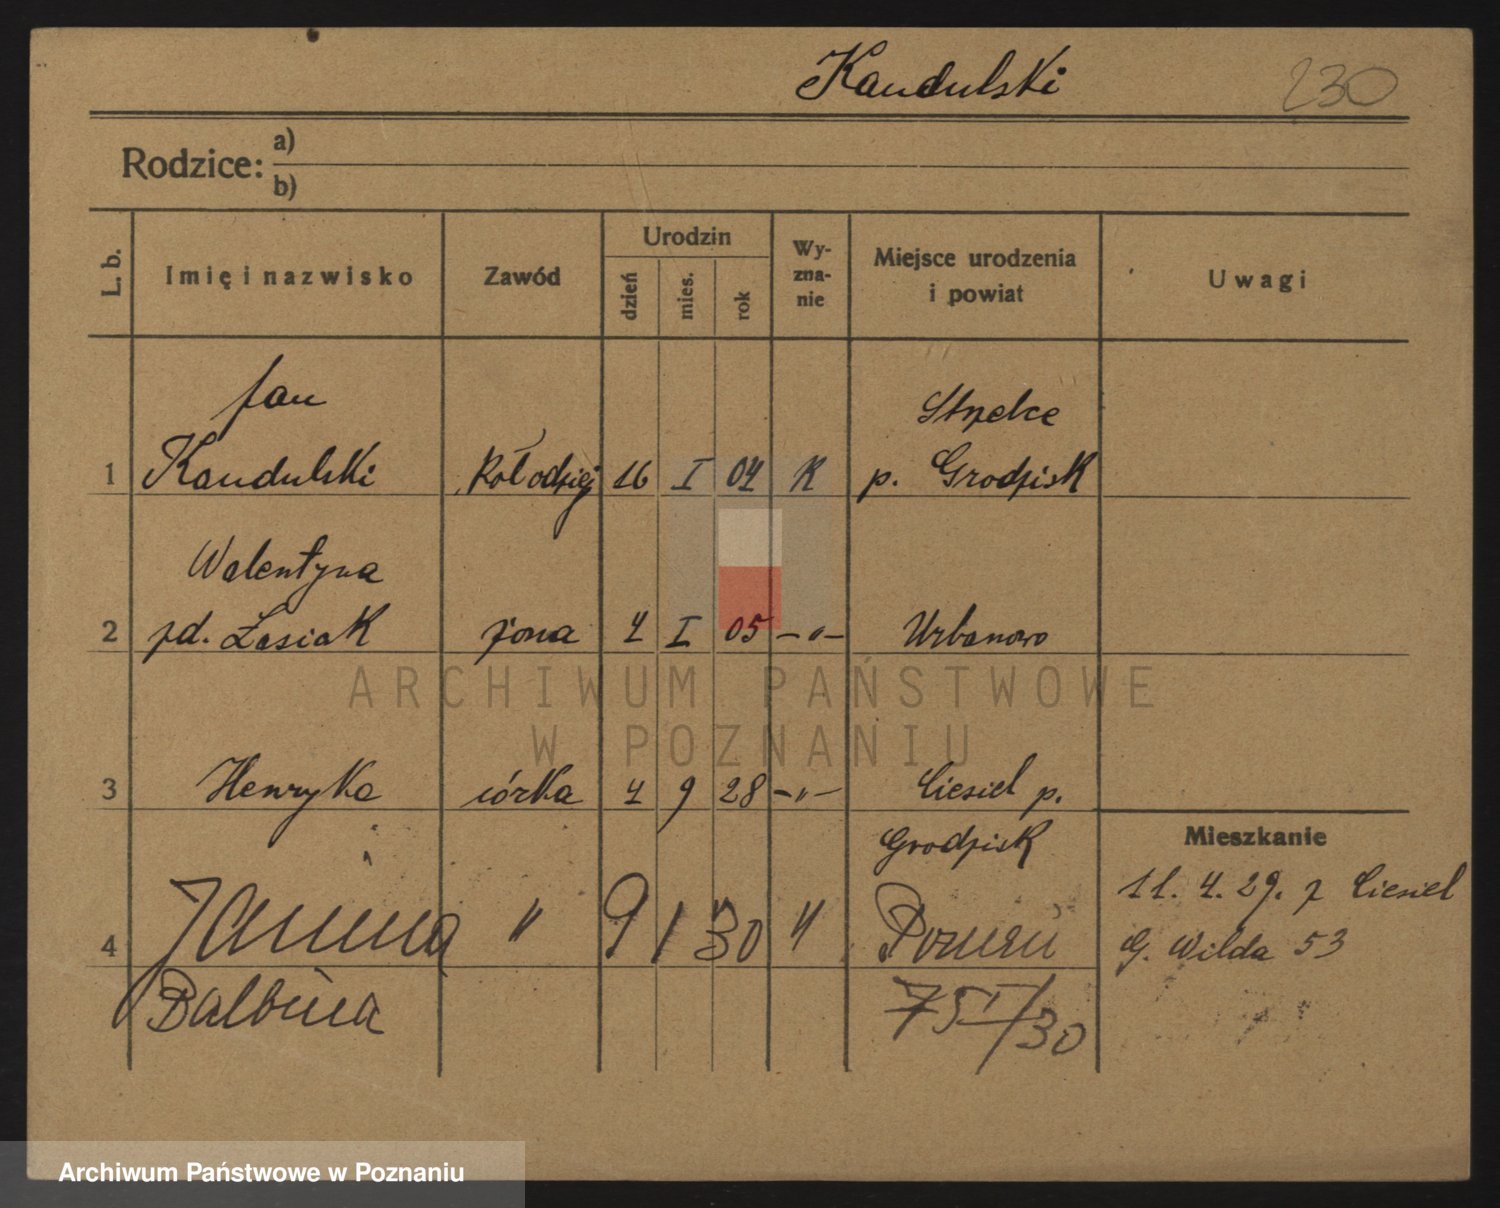 Kandulski 230
Rodzice: a)
b)
L. b. Imię i nazwisko Zawód Urodzin dzień mies. rok Wyznanie Miejsce urodzenia i powiat Uwagi
Jan Strzelce
1 Kandulski Kołodziej 16 I 04 K p. Grodzisk
Walentyna
2 zd. Łasiak żona 4 I 05 -"- Urbanowo
3 Henryka córka 4 9 28 -"- Ciesiel p.
Grodzisk
Mieszkanie
11. 4. 29. z Ciesiel
4 Janina " 9 1 30 " Poznań
G. Wilda 53
Balbina 75 I/30
ARCHIWUM PAŃSTWOWE
W POZNANIU
Archiwum Państwowe w Poznaniu